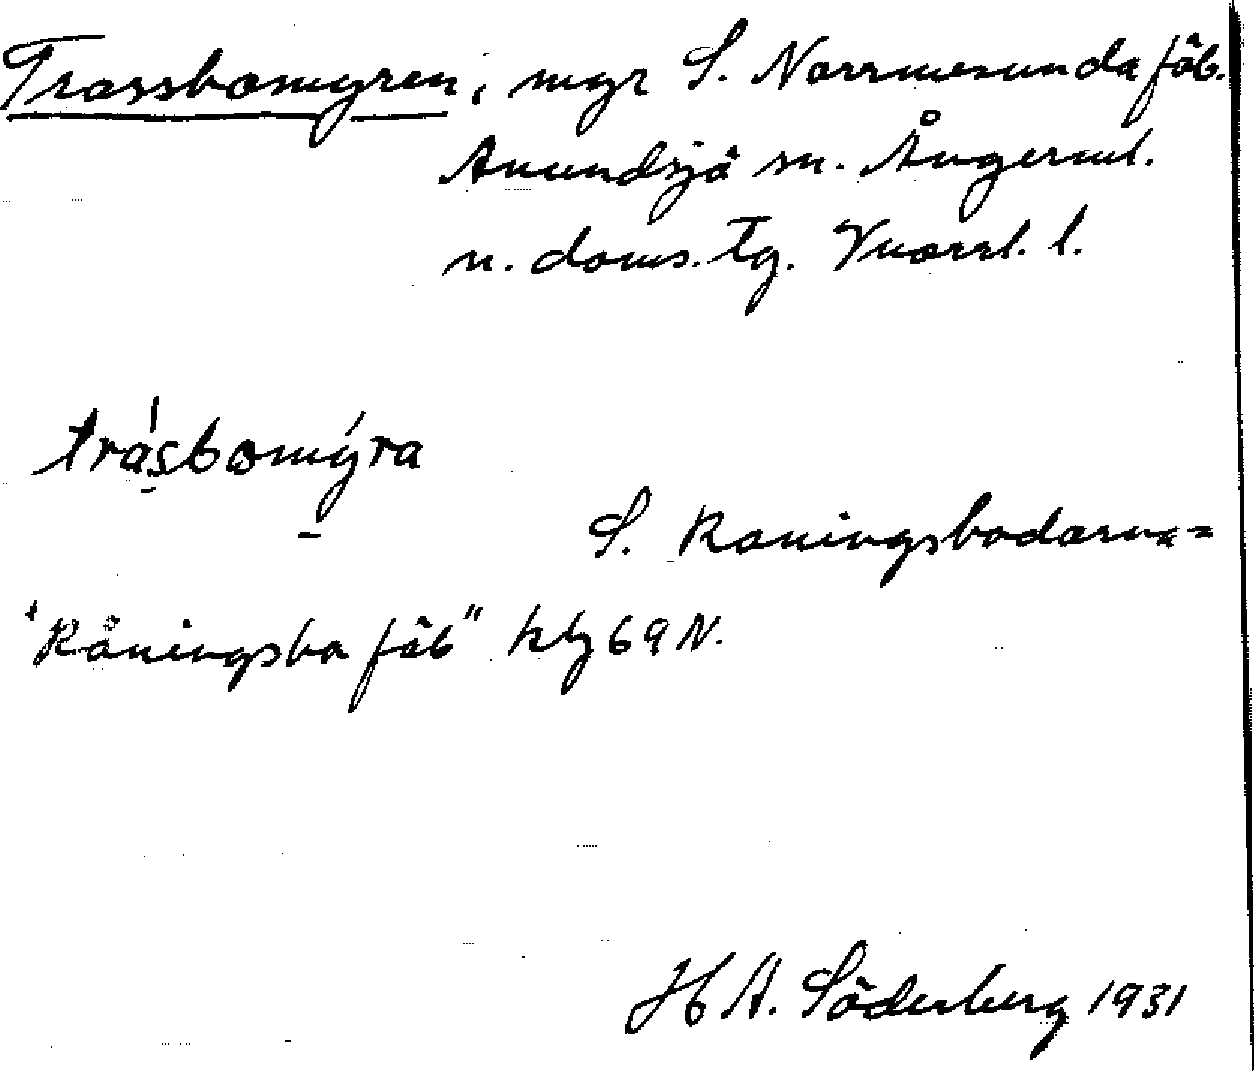 Trassbomyren, myr S. Norrmesunda fäb.
Anundsjö sn. Ångerml.
n. doms. tg. Vnorrl. l.
trásbomýra
S. Raningsbodarna=
"Råningsba fäb" kbj 69 N.
H A. Söderberg 1931